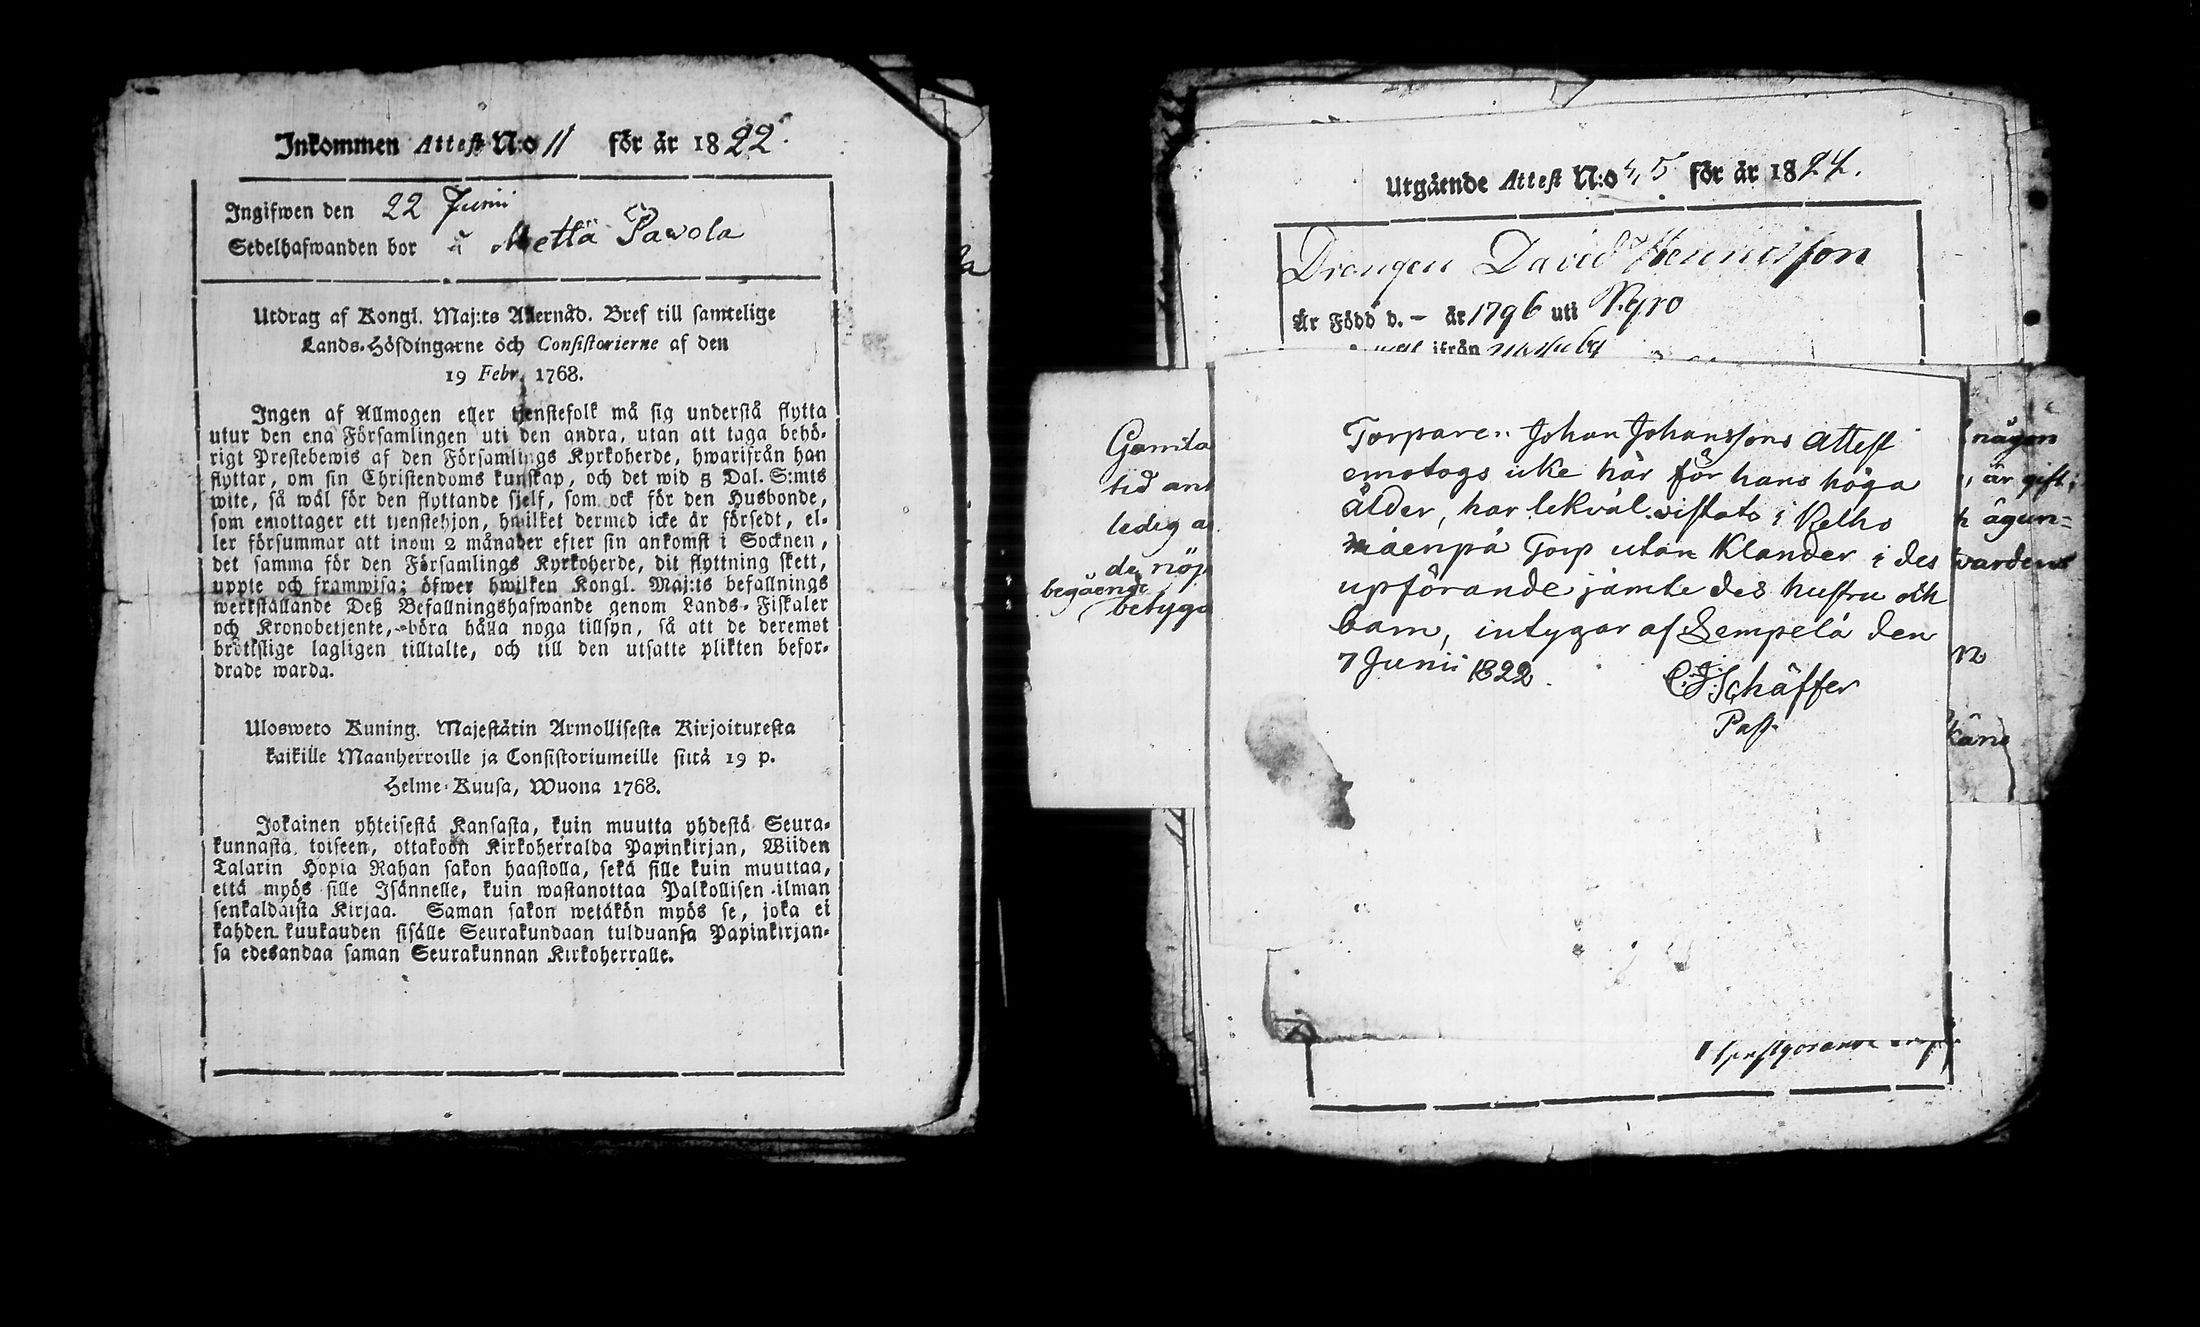 Inkommen Attest N:o 11 för år 1822.
Ingifwen den 22 Junii
Sedelhafwanden bor å Mettä Pavola
Utdrag af Kongl. Maj:ts Allernåd. Bref till samtelige
Lands-Höfdingarne och Consistorierne af den
19 Febr. 1768.
Ingen af Allmogen eller tjenstefolk må sig understå flytta
utur den ena Församlingen uti den andra, utan att taga behö-
rigt Prestebewis af den Församlings Kyrkoherde, hwarifrån han
flyttar, om sin Christendoms kunskap, och det wid 5 Dal. S:mts
wite, så wäl för den flyttande sjelf, som ock för den Husbonde,
som emottager ett tjenstehjon, hwilket dermed icke är försedt, el-
ler försummar att inom 2 månader efter sin ankomst i Socknen,
det samma för den Församlings Kyrkoherde, dit flyttning skett,
uppte och framwisa; öfwer hwilken Kongl. Maj:ts befallnings
werkställande Deß Befallningshafwande genom Lands-Fiskaler
och Kronobetjente, böra hålla noga tillsyn, så att de deremot
brötkslige lagligen tilltalte, och till den utsatte plikten befor-
drade warda.
Ulosweto Kuning. Majestätin Armollisesta Kirjoituxesta
kaikille Maanherroille ja Consistoriumeille siitä 19 p.
Helme-Kuusa, Wuona 1768.
Jokainen yhteisestä Kansasta, kuin muutta yhdestä Seura-
kunnasta toiseen, ottakoon Kirkoherralda Papinkirjan, Wiiden
Talarin Hopia Rahan sakon haastolla, sekä sille kuin muuttaa,
että myös sille Isännelle, kuin wastanottaa Palkollisen ilman
senkaldaista Kirjaa. Saman sakon wetäkön myös se, joka ei
kahden kuukauden sisälle Seurakundaan tulduansa Papinkirjan-
sa edesandaa saman Seurakunnan Kirkoherralle.
Utgående Attest N:o 45 för år 1824.
Drengen David Hennicsson
Är Född d. - år 1796 uti Kyro
ifrån
Gamla
tid ant
ledig a
de nöj
begående
betyga
Torparen Johan Johanssons Attest
emotogs icke här för hans höga
ålder, har lekväl vistats i Kelho
mäenpä Torp utan Klander i des
upförande jämte des hustru och
barn, intygar af Lempelä den
7 Junii 1822.
C.J. Schäffer
Past.
någon
, är gift;
h ägun=
varden